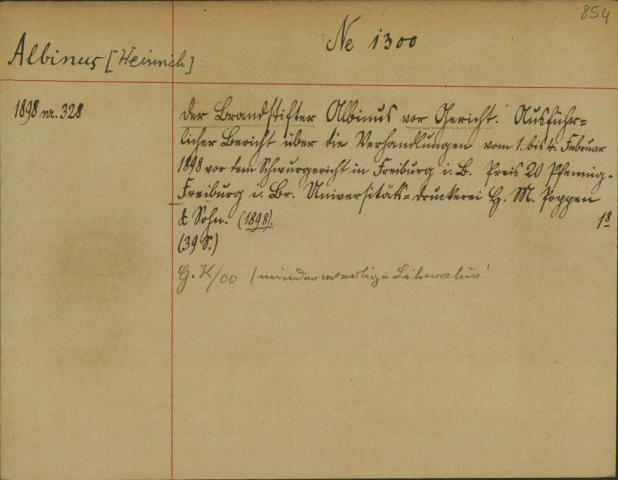 854
Ne 1300
Albinus [Heinrich]
1898 nr. 328
Der Brandstifter Albinus vor Gericht. Ausführ=
licher Bericht über die Verhandlungen vom 1. bis 4. Februar
1898 vor dem Schwurgericht in Freiburg i. B. Preis 20 Pfennig.
Freiburg i. Br. Universitäts=Druckerei H. M. Poppen
& Sohn. (1898).
18
(39 S.)
G. K/00 (minderwertige Literatur!